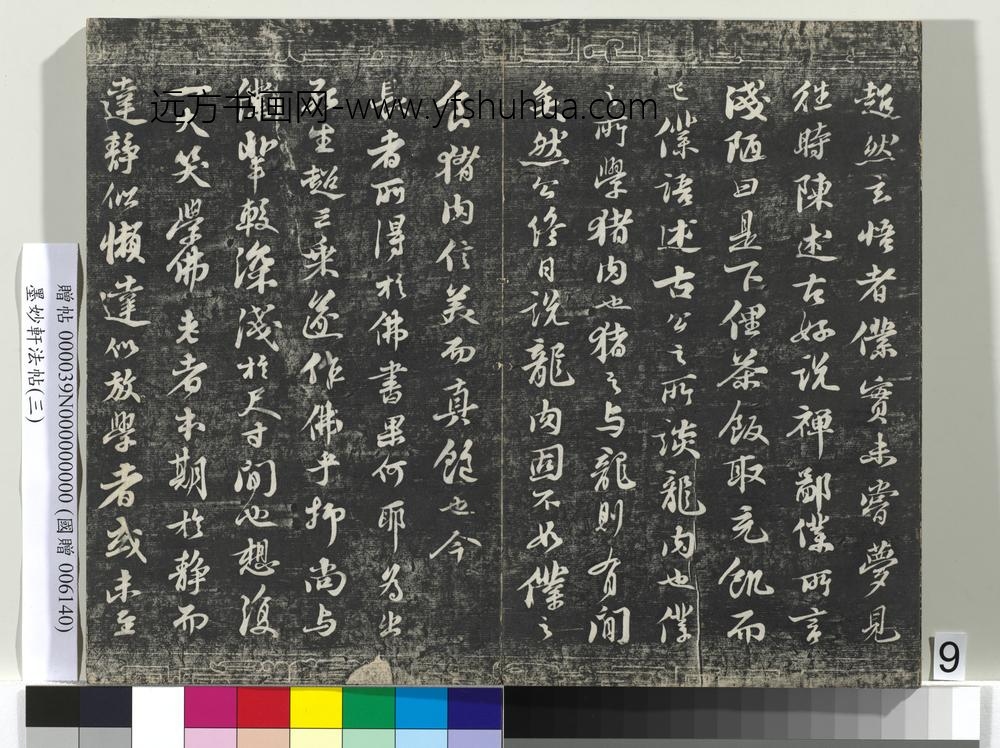 超然玄悟者僕實未嘗夢見
往時陳述古好說禪鄙僕所言
淺陋曰是下俚茶飯取充飢而
已僕語述古公之所談龍肉也僕
之所學猪肉也猪之与龍則有間
矣然公終日說龍肉固不如僕之
食猪肉信美而真飽也今
長者所得於佛書果何耶為出
死生超三乘遂作佛乎抑尚与
僕輩較深淺於尺寸間也想復
一大笑學佛老者本期於静而
達靜似懶達似放學者或未至
远方书画网-www.yfshuhua.com
贈帖 000039N000000000 (國贈 006140)
墨妙軒法帖(三)
9